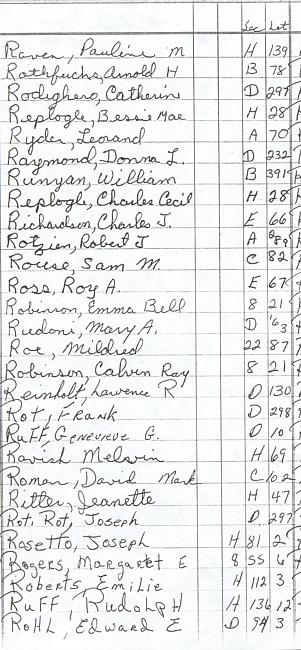 Sec Lot
Raven, Pauline M H 139
Rathfuchs, Arnold H B 78
Rodighero, Catherin D 297
Replogle, Bessie Mae H 28
Ryder, Leorand A 70
Raymond, Donna L. D 232
Runyan, William B 391
Replogle, Charles Cecil H 28
Richardson, Charles J. E 66
Rotzien, Robert J A
Rouse, Sam M. C 82
Ross, Roy A. E 67
Robinson, Emma Bell 8 21
Rudoni, Mary A. D 163
Roe, Mildred 22 87
Robinson, Calvin Ray 8 21
Reinholt, Lawence R D 130
Rot, Frank D 298
Ruff, Genevieve G. D 10
Ravish Melvin H 69
Roman, David Mark C 102
Ritter, Jeanette H 47
Rot. Rot, Joseph D 297
Rosetto, Joseph H 81 2
Rogers, Margaret E 8 55 6
Roberts, Emilie H 112 3
Ruff, Rudolph H H 136 12
Rohl, Edward E D 94 3